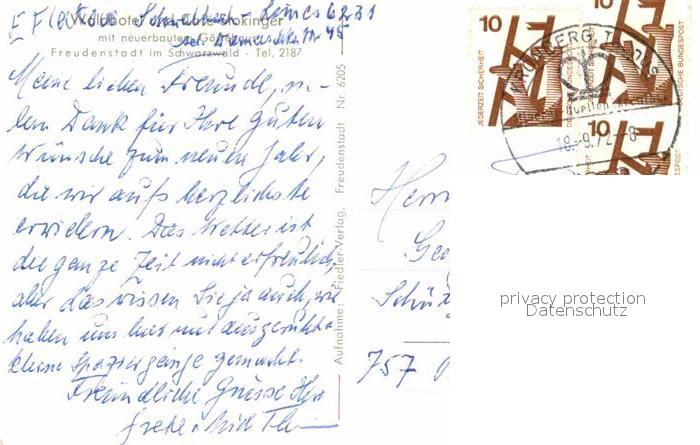 Waldhotel
mit neuerbautem Gästehaus
Freudenstadt im Schwarzwald - Tel. 2187
Meine lieben Freunde, vie-
len Dank für Ihre guten
Wünsche zum neuen Jahr,
die wir aufs herzlichste
erwidern. Das Wetter ist
die ganze Zeit nicht erfreulich,
aber das wissen Sie ja auch, wir
haben uns hier nur ausgeruht +
kleine Spaziergänge gemacht.
Freundliche Grüsse Ihre
Aufnahme: Fiedler-Verlag, Freudenstadt Nr. 6205
10
JEDERZEIT SICHERHEIT
10
DEUTSCHE BUNDESPOST
10
18.-9.72-8
Herrn
Schütz
757
privacy protection
Datenschutz